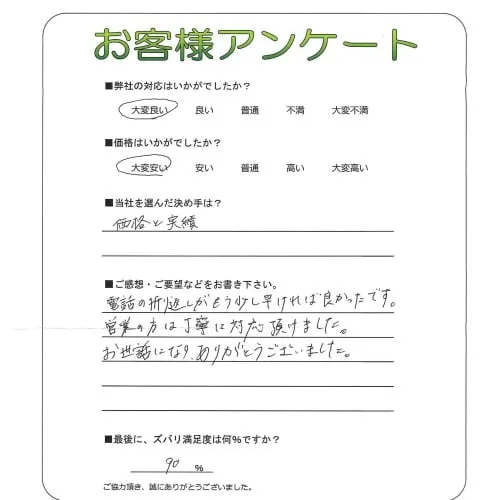 お客様アンケート
■弊社の対応はいかがでしたか？
大変良い 良い 普通 不満 大変不満
■価格はいかがでしたか？
大変安い 安い 普通 高い 大変高い
■当社を選んだ決め手は？
価格と実績
■ご感想・ご要望などをお書き下さい。
電話の折り返しがもう少し早ければ良かったです。
営業の方は丁寧に対応頂けました。
お世話になり、ありがとうございました。
■最後に、ズバリ満足度は何％ですか？
90 ％
ご協力頂き、誠にありがとうございました。